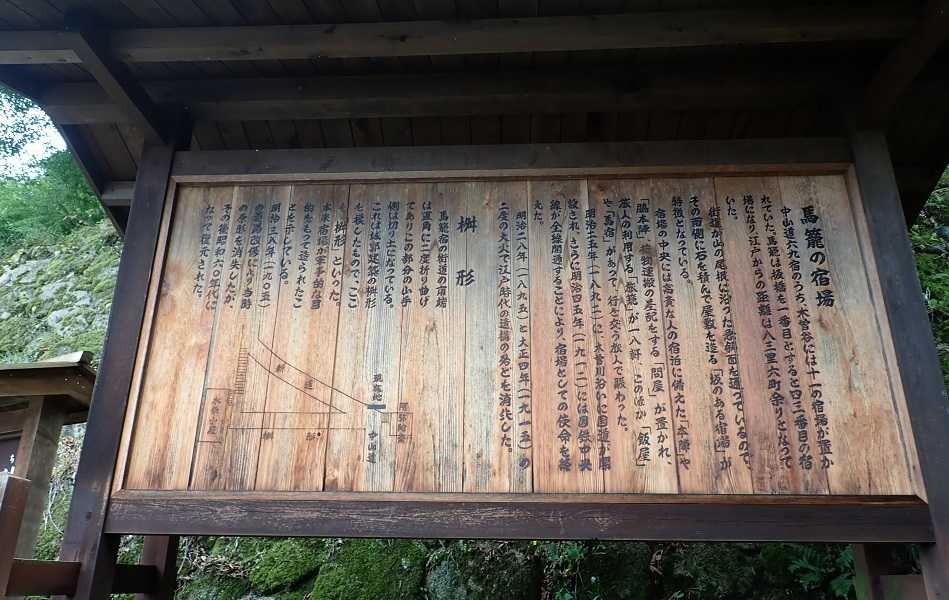 馬籠の宿場
中山道六九宿のうち、木曽谷には十一の宿場が置か
れていた。馬籠は板橋を一番目とすると四三番目の宿
場になり、江戸からの距離は八三里六町余りとなって
いた。
街道が山の尾根に沿った急斜面を通っているので、
その両側に石を積んで屋敷を造る「坂のある宿場」が
特徴となっている。
宿場の中央には高貴な人の宿泊に備えた「本陣」や
「脇本陣」、荷物運搬の差配をする「問屋」が置かれ、
旅人の利用する「旅籠」が一八軒、このほか「飯屋」
や「馬宿」があって、行き交う旅人で賑わった。
明治二五年(一八九二)に木曽川沿いに国道が開
設され、さらに明治四五年(一九一二)には国鉄中央
線が全線開通することにより、宿場としての使命を終
えた。
明治二八年(一八九五)と大正四年(一九一五)の
二度の大火で江戸時代の遺構の殆どを消失した。
桝形
馬籠宿の街道の南端
は直角に二度折り曲げ
てありこの部分の山手
側は切り土になっている。
これは城郭建築の桝形
を模したもので、ここ
も「桝形」といった。
本来宿場は軍事的な目
的をもって造られたこ
とを示している。
明治三八年(一九〇五)
の道路改修により当時
の原形を消失したが、
その後昭和六〇年代に
なって復元された。
現在地
中山道
新道
桝形
水車小屋